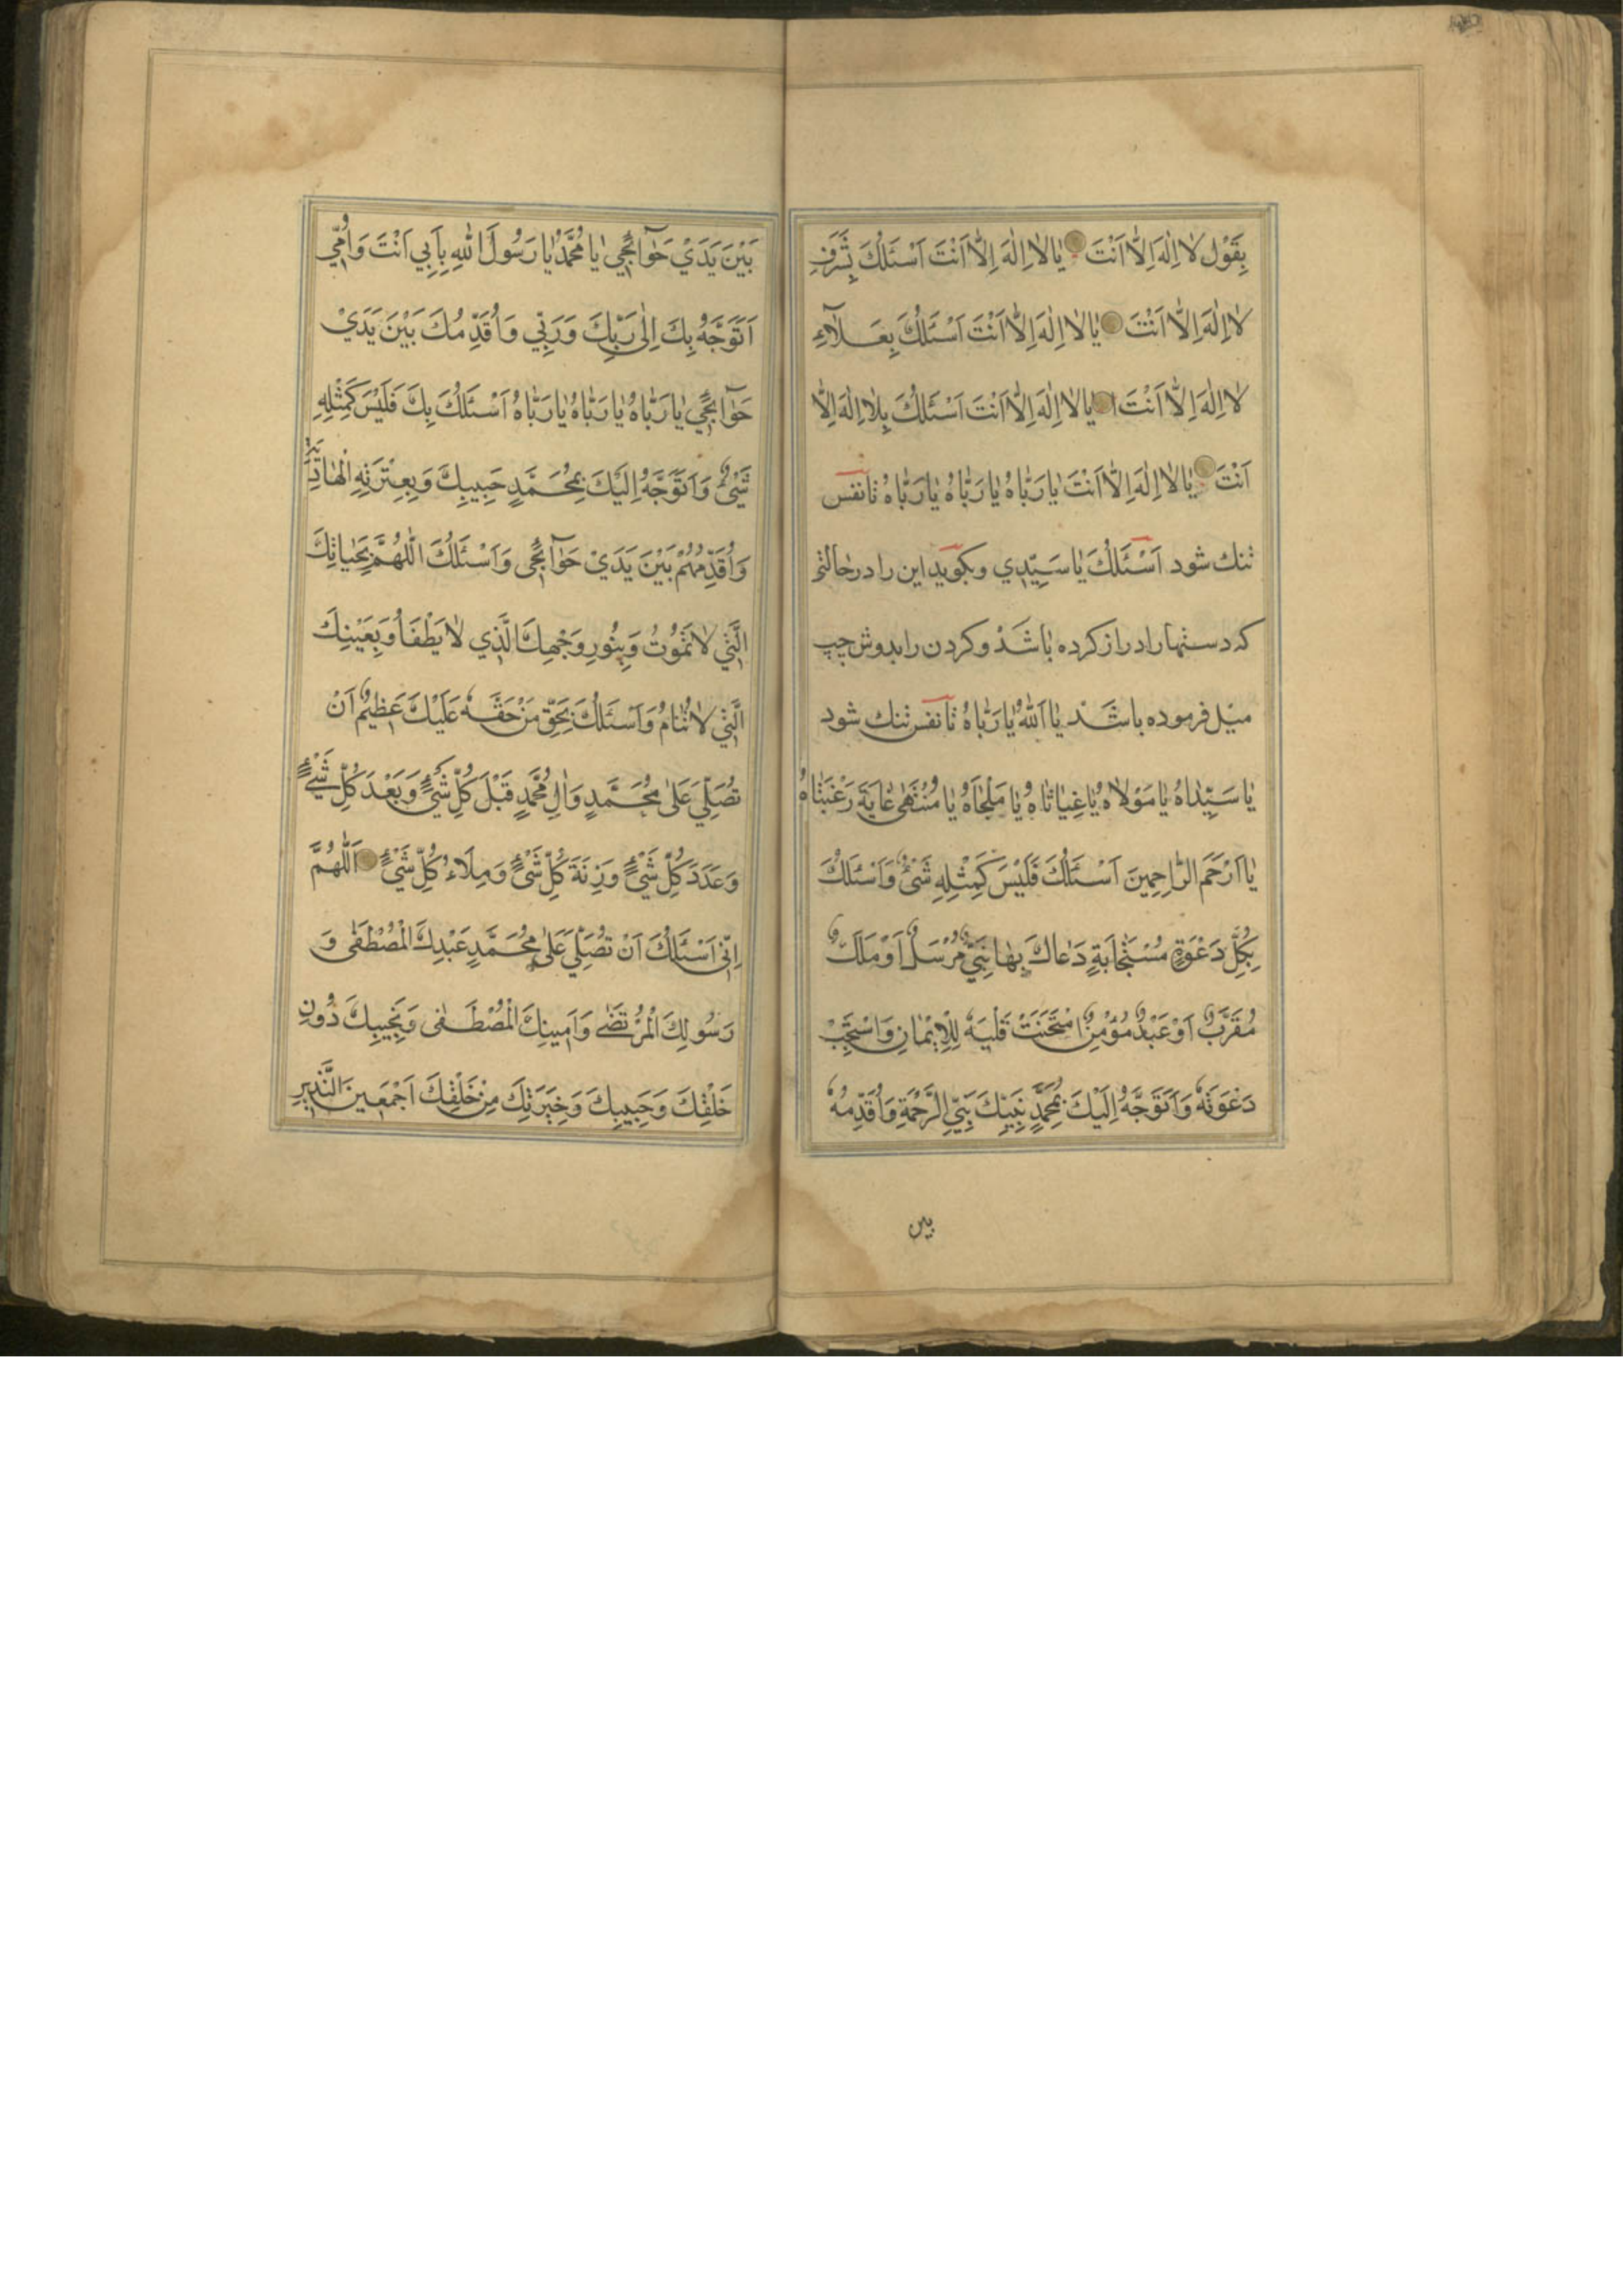 بِقَوْلِ لٰا اِلٰهَ اِلّٰا اَنْتَ يٰا لٰا اِلٰهَ اِلّٰا اَنْتَ اَسْئَلُكَ بِشَرَفِ
لٰا اِلٰهَ اِلّٰا اَنْتَ يٰا لٰا اِلٰهَ اِلّٰا اَنْتَ اَسْئَلُكَ بِعَلٰآءِ
لٰا اِلٰهَ اِلّٰا اَنْتَ يٰا لٰا اِلٰهَ اِلّٰا اَنْتَ اَسْئَلُكَ بِلٰا اِلٰهَ اِلّٰا
اَنْتَ يٰا لٰا اِلٰهَ اِلّٰا اَنْتَ يٰا رَبّٰاهُ يٰا رَبّٰاهُ يٰا رَبّٰاهُ تا نفس
تنك شود اَسْئَلُكَ يٰا سَيِّدِي وبكويد اين را در حالتى
كه دستها را دراز كرده باشَد وكردن را بدوش چپ
ميل فرموده باشَد يٰا اَللهُ يٰا رَبّٰاهُ تا نفس تنك شود
يٰا سَيِّدٰاهُ يٰا مَوْلٰاهُ يٰا غِيٰاثٰاهُ يٰا مَلْجَاٰهُ يٰا مُنْتَهٰى غٰايَةَ رَغْبَتٰاهُ
يٰا اَرْحَمَ الرّٰاحِمِينَ اَسْئَلُكَ فَلَيْسَ كَمِثْلِهِ شَيْءٌ وَاَسْئَلُكَ
بِكُلِّ دَعْوَةٍ مُسْتَجٰابَةٍ دَعٰاكَ بِهٰا نَبِيٌّ مُرْسَلٌ اَوْ مَلَكٌ
مُقَرَّبٌ اَوْ عَبْدٌ مُؤْمِنٌ امْتَحَنْتَ قَلْبَهُ لِلْاِيْمٰانِ وَاسْتُجِبْ
دَعْوَتَهُ وَاَتَوَجَّهُ اِلَيْكَ بِمُحَمَّدٍ نَبِيِّكَ نَبِيِّ الرَّحْمَةِ وَاُقَدِّمُهُ
بين
بَيْنَ يَدَيْ حَوٰآئِجِي يٰا مُحَمَّدُ يٰا رَسُولَ اللهِ بِاَبِي اَنْتَ وَاُمِّي
اَتَوَجَّهُ بِكَ اِلٰى رَبِّكَ وَرَبِّي وَاُقَدِّمُكَ بَيْنَ يَدَيْ
حَوٰآئِجِي يٰا رَبّٰاهُ يٰا رَبّٰاهُ يٰا رَبّٰاهُ اَسْئَلُكَ بِكَ فَلَيْسَ كَمِثْلِهِ
شَيْءٌ وَاَتَوَجَّهُ اِلَيْكَ بِمُحَمَّدٍ حَبِيبِكَ وَبِعِتْرَتِهِ الْهٰادِيَةِ
وَاُقَدِّمُهُمْ بَيْنَ يَدَيْ حَوٰآئِجِى وَاَسْئَلُكَ اللّٰهُمَّ بِحَيٰاتِكَ
الَّتِي لٰا تَمُوتُ وَبِنُورِ وَجْهِكَ الَّذِي لٰا يَطْفَاُ وَبِعَيْنِكَ
الَّتِي لٰا تَنٰامُ وَاَسْئَلُكَ بِحَقِّ مَنْ حَقُّهُ عَلَيْكَ عَظِيمٌ اَنْ
تُصَلِّيَ عَلٰى مُحَمَّدٍ وَاٰلِ مُحَمَّدٍ قَبْلَ كُلِّ شَيْءٍ وَبَعْدَ كُلِّ شَيْءٍ
وَعَدَدَ كُلِّ شَيْءٍ وَزِنَةَ كُلِّ شَيْءٍ وَمِلَاءَ كُلِّ شَيْءٍ اَللّٰهُمَّ
اِنِّى اَسْئَلُكَ اَنْ تُصَلِّيَ عَلٰى مُحَمَّدٍ عَبْدِكَ الْمُصْطَفٰى وَ
رَسُولِكَ الْمُرْتَضٰى وَاَمِينِكَ الْمُصْطَفٰى وَنَجِيبِكَ دُونِ
خَلْقِكَ وَحَبِيبِكَ وَخِيَرَتِكَ مِنْ خَلْقِكَ اَجْمَعِينَ النَّذِيرِ